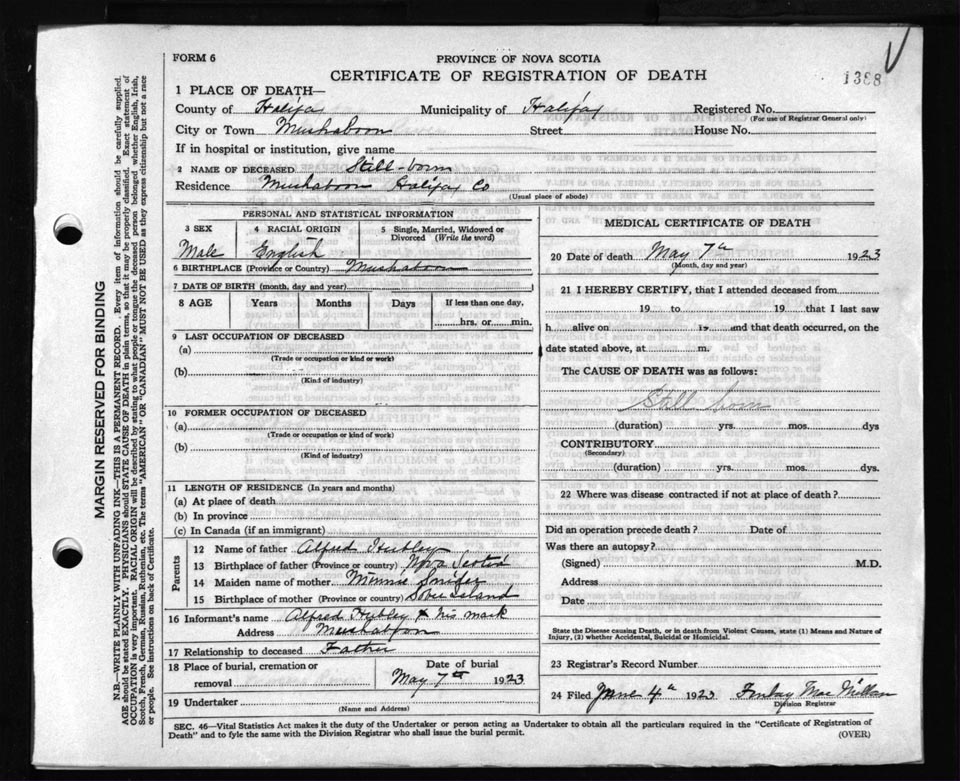 FORM 6
PROVINCE OF NOVA SCOTIA
CERTIFICATE OF REGISTRATION OF DEATH
1388
1 PLACE OF DEATH—
County of Halifax Municipality of Halifax Registered No.
(For use of Registrar General only)
City or Town Mushaboon Street House No.
If in hospital or institution, give name
2 NAME OF DECEASED Still-born
Residence Mushaboon Halifax Co
(Usual place of abode)
PERSONAL AND STATISTICAL INFORMATION
3 SEX 4 RACIAL ORIGIN 5 Single, Married, Widowed or
Divorced (Write the word)
Male English
6 BIRTHPLACE (Province or Country) Mushaboon
7 DATE OF BIRTH (month, day and year)
8 AGE Years Months Days If less than one day,
hrs. or min.
9 LAST OCCUPATION OF DECEASED
(a)
(Trade or occupation or kind or work)
(b)
(Kind of industry)
10 FORMER OCCUPATION OF DECEASED
(a)
(Trade or occupation or kind of work)
(b)
(Kind of industry)
11 LENGTH OF RESIDENCE (In years and months)
(a) At place of death
(b) In province
(c) In Canada (if an immigrant)
Parents
12 Name of father Alfred Hubley
13 Birthplace of father (Province or country) Nova Scotia
14 Maiden name of mother Minnie
15 Birthplace of mother (Province or country) Sober Island
16 Informant's name Alfred Hubley + his mark
Address Mushaboon
17 Relationship to deceased Father
18 Place of burial, cremation or
removal
Date of burial
May 7th 1923
19 Undertaker
(Name and Address)
MEDICAL CERTIFICATE OF DEATH
20 Date of death May 7th 1923
(Month, day and year)
21 I HEREBY CERTIFY, that I attended deceased from
19 to 19 that I last saw
h alive on 19 and that death occurred, on the
date stated above, at m.
The CAUSE OF DEATH was as follows:
Still born
(duration) yrs. mos. dys
CONTRIBUTORY
(Secondary)
(duration) yrs. mos. dys.
22 Where was disease contracted if not at place of death?
Did an operation precede death? Date of
Was there an autopsy?
(Signed) M.D.
Address
Date
State the Disease causing Death, or in death from Violent Causes, state (1) Means and Nature of
Injury, (2) whether Accidental, Suicidal or Homicidal.
23 Registrar's Record Number
24 Filed June 4th 1923 Finlay MacMillan
Division Registrar
SEC. 46—Vital Statistics Act makes it the duty of the Undertaker or person acting as Undertaker to obtain all the particulars required in the "Certificate of Registration of
Death" and to fyle the same with the Division Registrar who shall issue the burial permit.
(OVER)
MARGIN RESERVED FOR BINDING
N.B.—WRITE PLAINLY WITH UNFADING INK—THIS IS A PERMANENT RECORD. Every item of information should be carefully supplied.
AGE should be stated EXACTLY. PHYSICIANS should STATE CAUSE OF DEATH in plain terms, so that it may be properly classified. Exact statement of
OCCUPATION is very important. RACIAL ORIGIN will be described by stating to what people or tongue the deceased person belonged whether English, Irish,
Scotch, French, German, Russian, Ruthenian, etc. The terms "AMERICAN" OR "CANADIAN" MUST NOT BE USED as they express citizenship but not a race
or people. See instructions on back of Certificate.